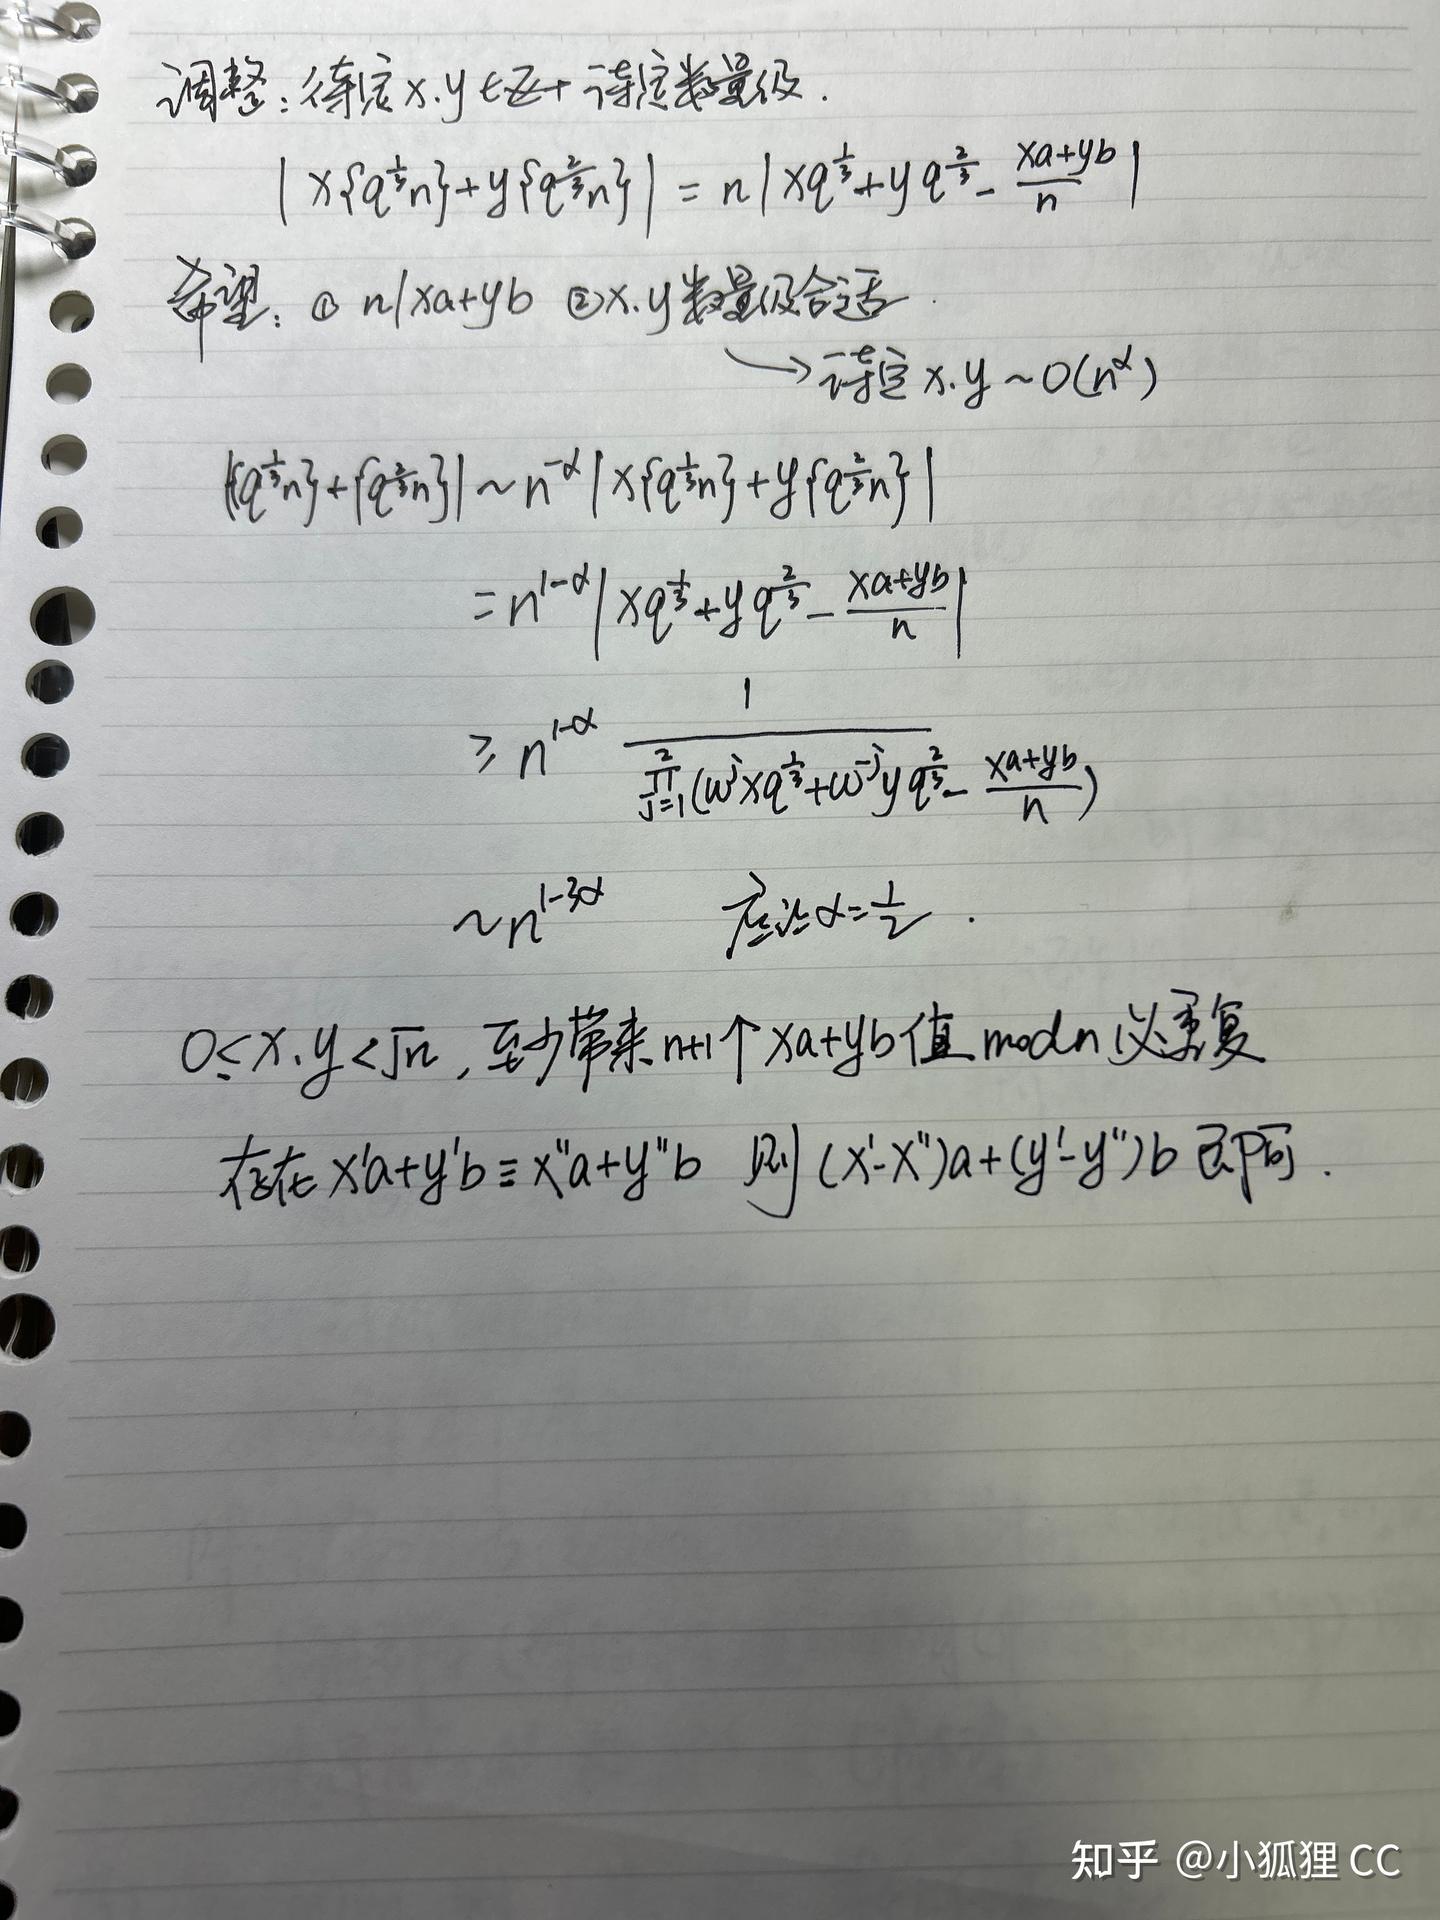 调整:待定x.y∈Z+ 待定数量级.
|x{q^{1/3}n}+y{q^{2/3}n}| = n|xq^{1/3}+yq^{2/3}-\frac{xa+yb}{n}|
希望: ① n|xa+yb ②x.y数量级合适.
→待定 x.y~O(n^α)
|{q^{1/3}n}+{q^{2/3}n}|~n^{-α}|x{q^{1/3}n}+y{q^{2/3}n}|
=n^{1-α}|xq^{1/3}+yq^{2/3}-\frac{xa+yb}{n}|
≥n^{1-α} \frac{1}{\prod_{j=1}^{2}(ω^j xq^{1/3}+ω^{-j}yq^{2/3}-\frac{xa+yb}{n})}
~n^{1-3α} 应让α=\frac{1}{2}.
0≤x.y<√n, 至少带来n+1个xa+yb值 mod n 必重复
存在x'a+y'b≡x''a+y''b 则(x'-x'')a+(y'-y'')b 即可.
知乎 @小狐狸 CC